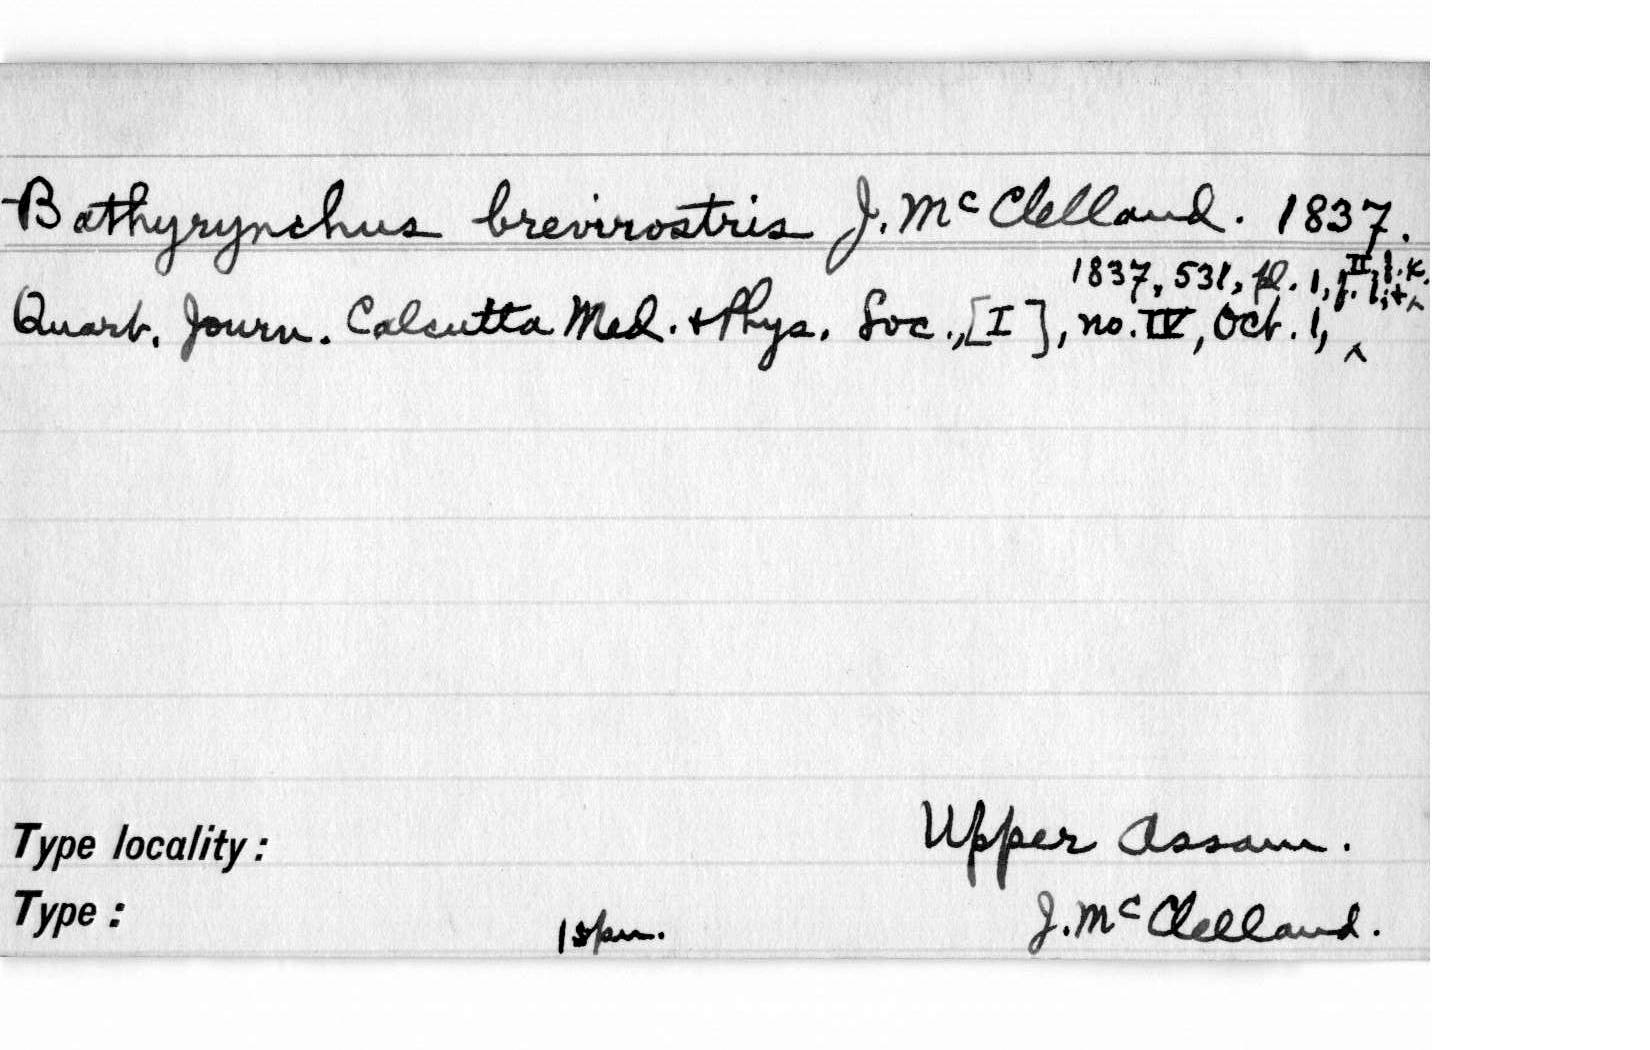 Bathyrynchus brevirostris J. McClelland. 1837.
1837, 531, pl. 1, f.
Quart. Journ. Calcutta Med. + Phys. Soc., [I], no. IV, Oct. 1, ^
Type locality: Upper Assam.
Type: 1 spm. J. McClelland.